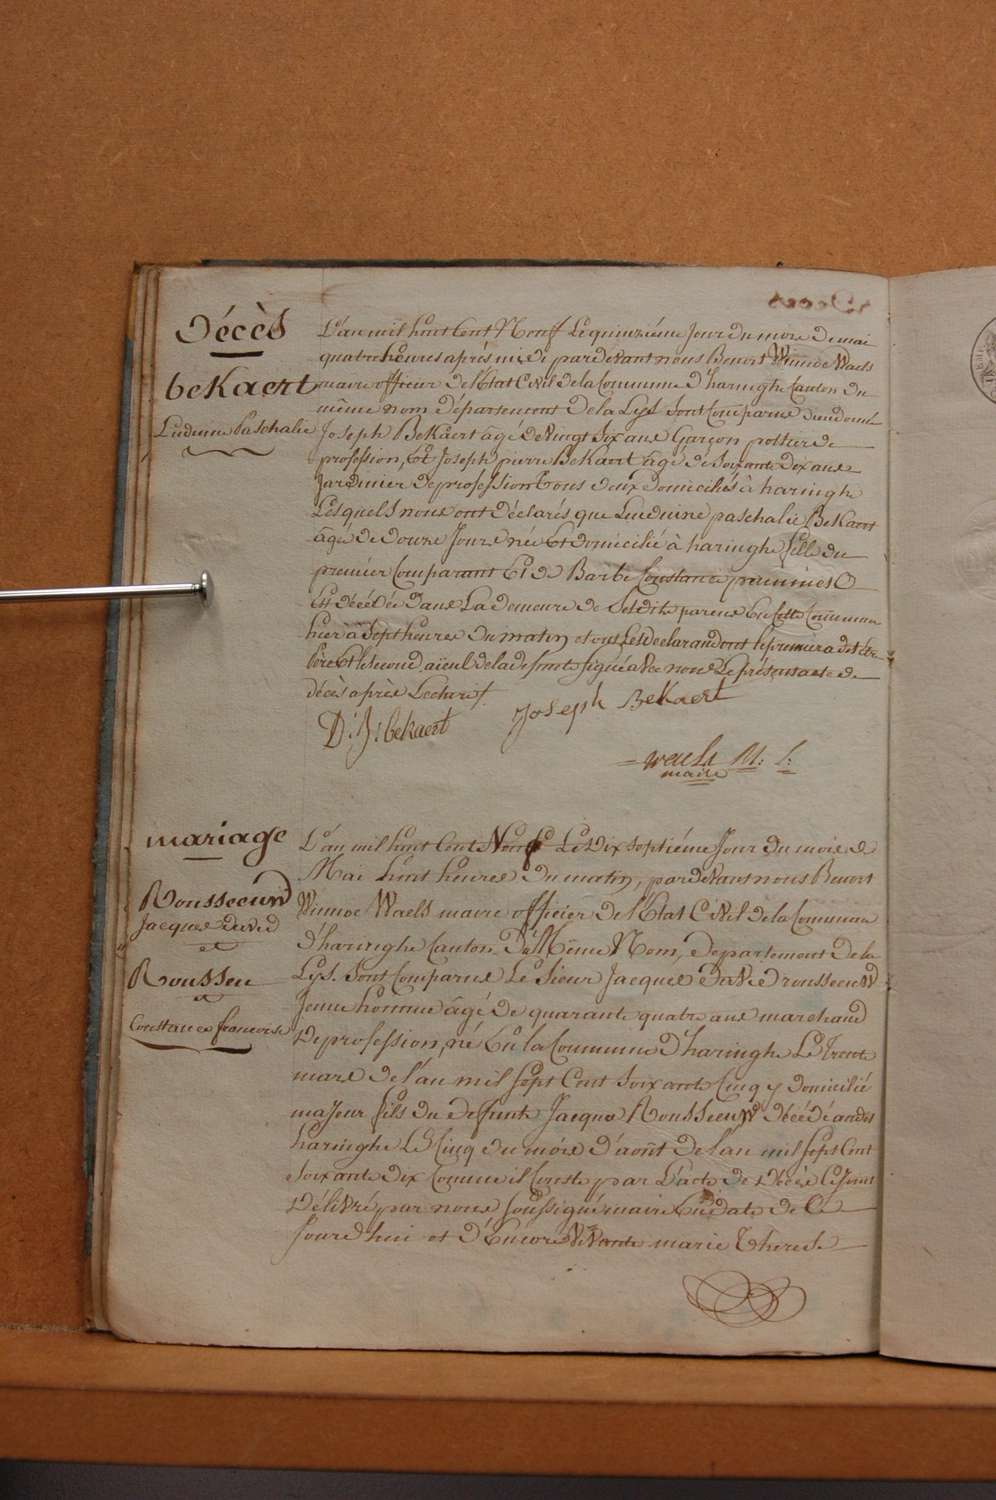 Décès
beKaert
Luduine Paschalie
L'an mil huit Cent Neuf Le quinzième Jour du mois de mai
quatre heures après midi pardevant nous Benoit Winnoc Waels
maire officier de l'Etat Civil de la Commune d'haringhe Canton du
même nom département de la Lys sont Comparus
Joseph BeKaert âgé de vingt six ans Garçon pottier de
profession, Et Joseph pierre BeKaert âgé de soixante dix ans
Jardinier de profession tous deux domiciliés à haringhe
Lesquels nous ont déclarés que Luduine paschalie BeKaert
âgé de douze Jours née Et domicilié à haringhe fille du
premier Comparant Et de Barbe Constance
Est décédée dans La demeure de Sesdits parens En Cette Commune
hier à Sept heures du matin et ont Les declarans dont le premier a dit être
père Et le second aïeul de la defunte signé avec nous Le présent acte de
décès après Lecture f.
D: J: beKaert
Joseph BeKaert
Waels M: L:
maire
mariage
Rousseeuw
Jacques David
et
Rousseu
Constance francoise
L'an mil huit Cent Neuf Le Dix Septième Jour du mois de
Mai huit heures du matin, pardevant nous Benoit
Winnoc Waels maire officier de l'Etat Civil de la Commune
d'haringhe Canton du Même Nom, département de la
Lys. Sont Comparus Le Sieur Jacques David rousseeuw
Jeune homme âgé de quarante quatre ans marchand
De profession, né En la Commune D'haringhe Le Trente
mars de l'an mil Sept Cent Soixante Cinq y domicilié
majeur fils du defunt Jacques Rousseeuw décédé audit
haringhe Le Cinq du mois d'août de l'an mil Sept Cent
Soixante dix Comme il Conste par L'acte de Décès Ci Joint
Délivré par nous Soussigné maire En date de Ce
Jourdhui et d'Encore Vivante marie Therese